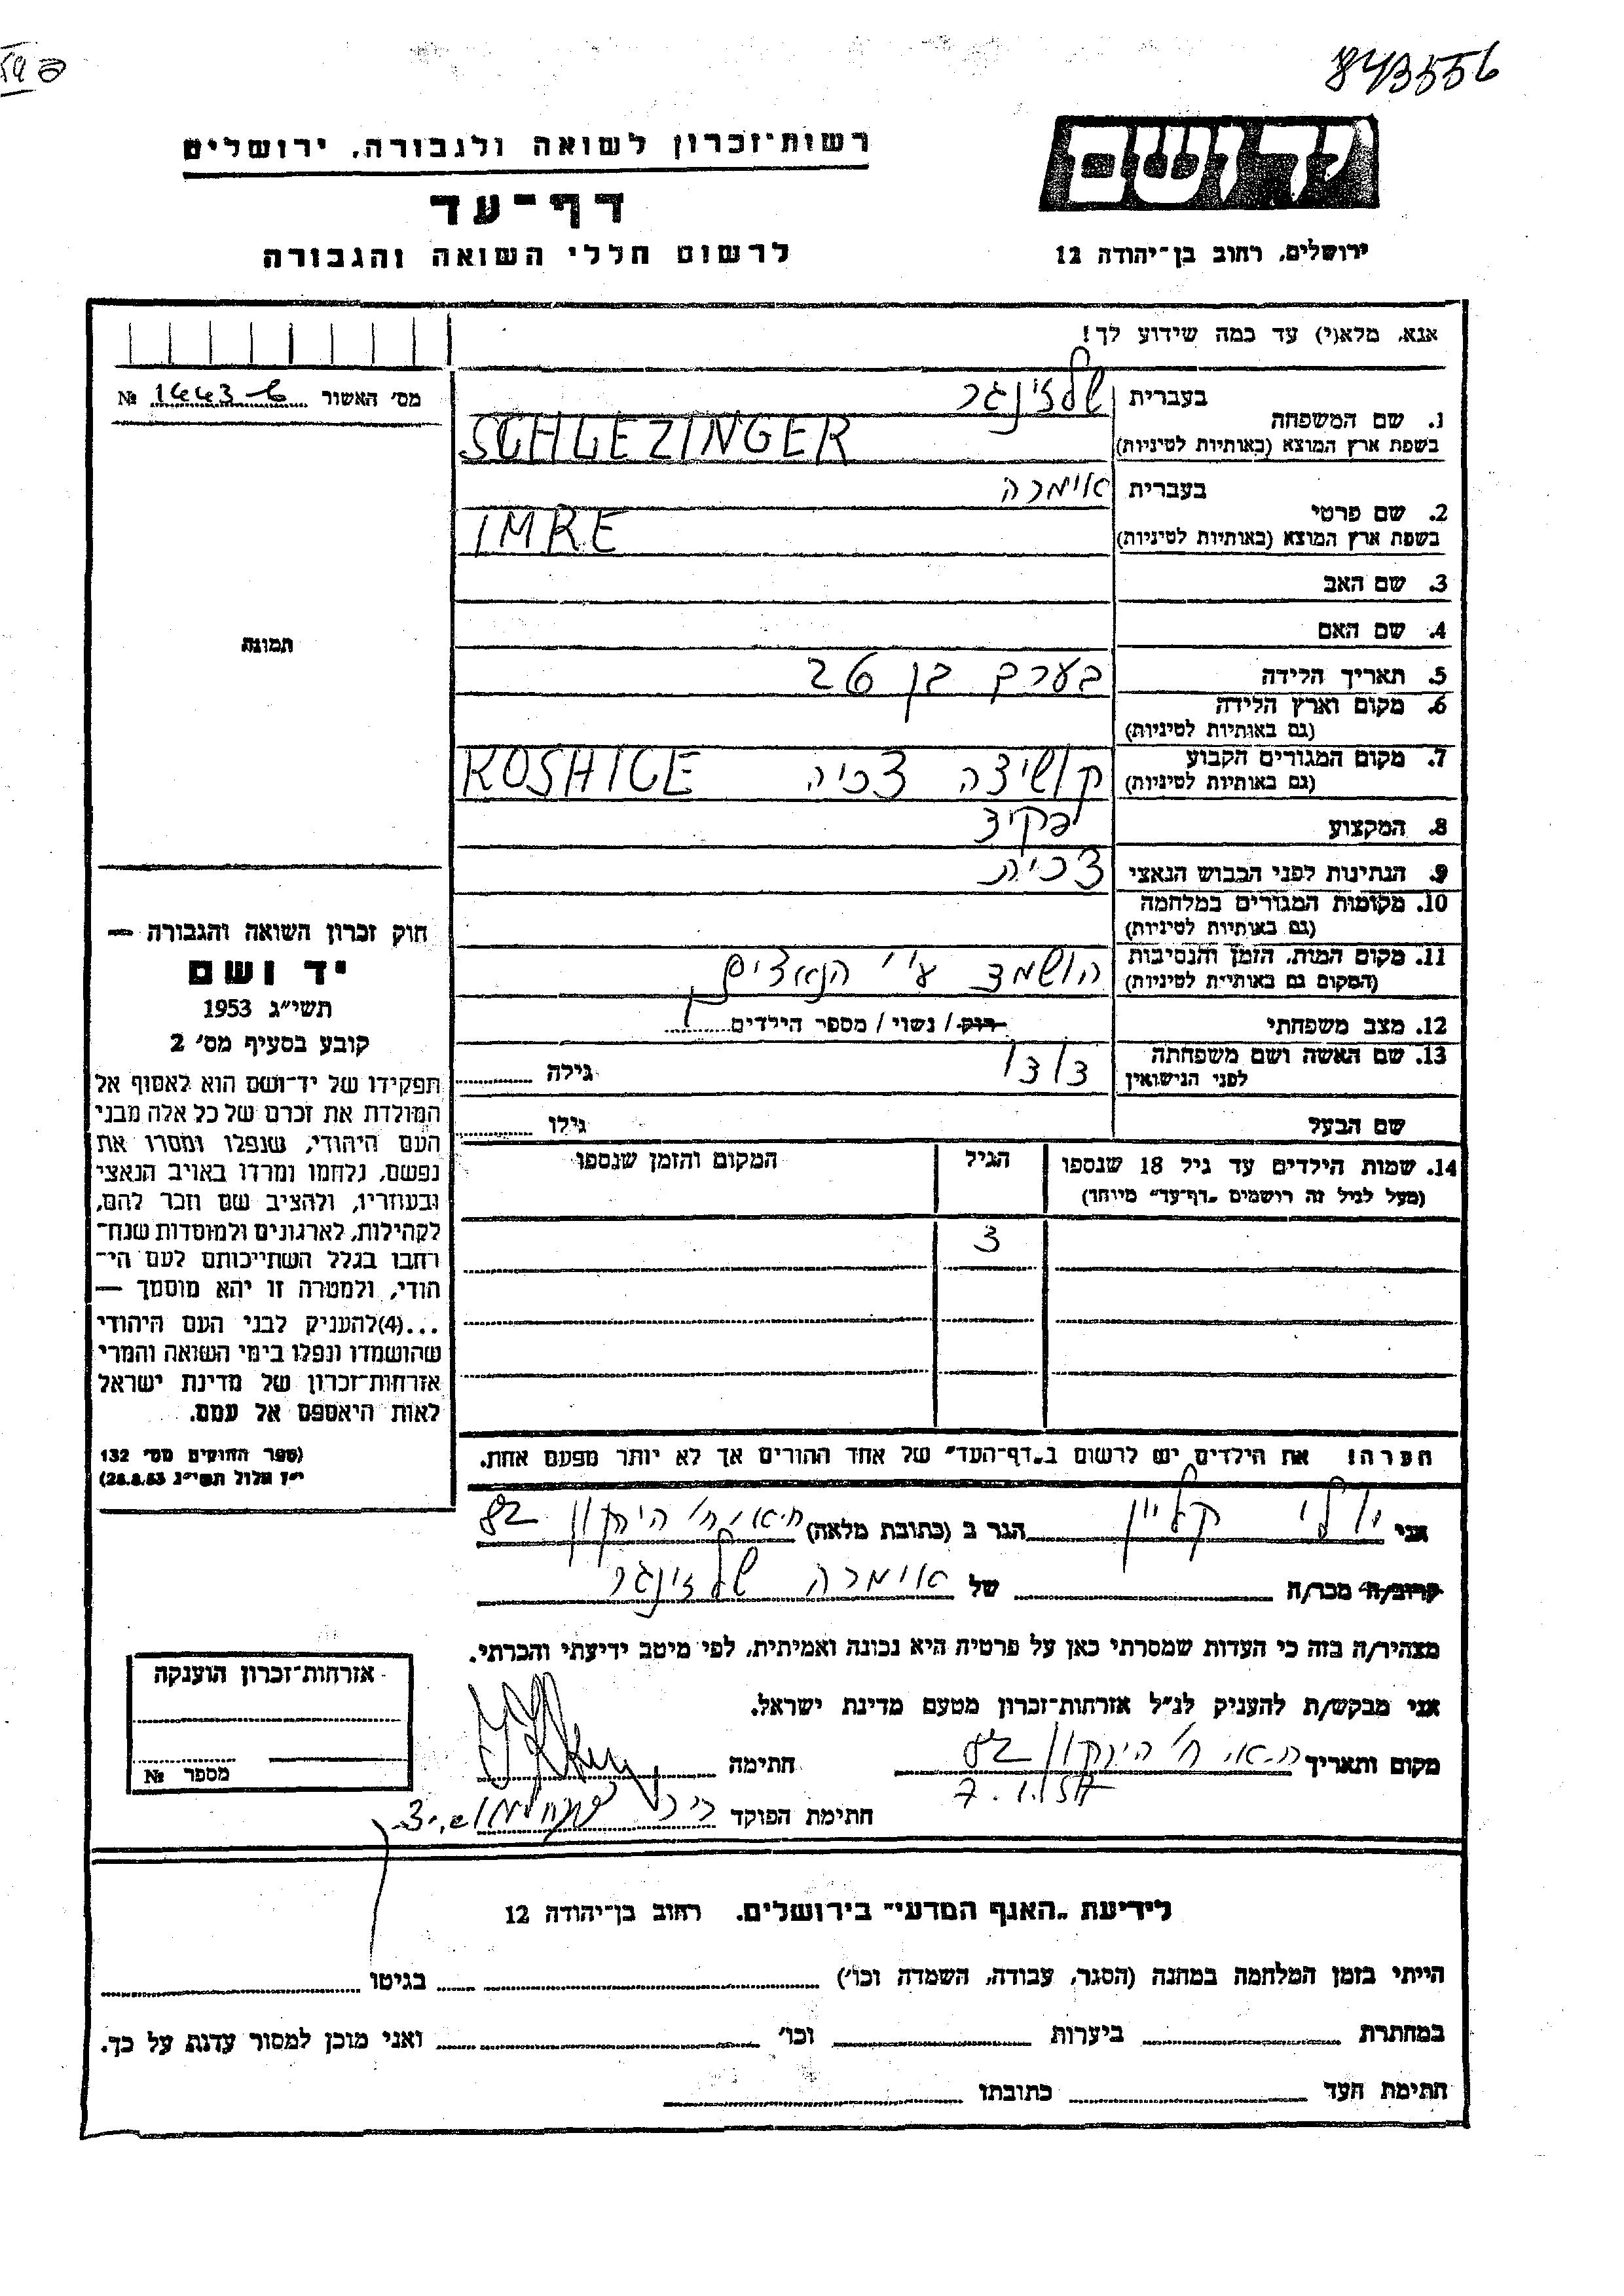 843556
רשות־זכרון לשואה ולגבורה, ירושלים
יד ושם
דף־עד
לרשום חללי השואה והגבורה
ירושלים, רחוב בן־יהודה 12
אנא, מלא(י) עד כמה שידוע לך!
מס׳ האשור № 1443-6
1. שם המשפחה
בעברית שלזינגר
בשפת ארץ המוצא (באותיות לטיניות) SCHLEZINGER
2. שם פרטי
בעברית אימרה
בשפת ארץ המוצא (באותיות לטיניות) IMRE
3. שם האב
4. שם האם
תמונה
5. תאריך הלידה בערך בן 26
6. מקום וארץ הלידה
(גם באותיות לטיניות)
7. מקום המגורים הקבוע קושיצה צ'כיה KOSHICE
(גם באותיות לטיניות)
8. המקצוע פקיד
9. הנתינות לפני הכבוש הנאצי צ'כית
10. מקומות המגורים במלחמה
(גם באותיות לטיניות)
11. מקום המות, הזמן והנסיבות הושמד ע"י הנאצים
(המקום גם באותיות לטיניות)
12. מצב משפחתי רוק / נשוי / מספר הילדים 1
13. שם האשה ושם משפחתה דודו גילה
לפני הנישואין
שם הבעל גילו
14. שמות הילדים עד גיל 18 שנספו הגיל המקום והזמן שנספו
(מעל לגיל זה רושמים „דף־עד״ מיוחד)
3
הערה! את הילדים יש לרשום ב„דף־העד״ של אחד ההורים אך לא יותר מפעם אחת.
חוק זכרון השואה והגבורה —
יד ושם
תשי״ג 1953
קובע בסעיף מס׳ 2
תפקידו של יד־ושם הוא לאסוף אל
המולדת את זכרם של כל אלה מבני
העם היהודי, שנפלו ומסרו את
נפשם, נלחמו ומרדו באויב הנאצי
ובעוזריו, ולהציב שם וזכר להם,
לקהילות, לארגונים ולמוסדות שנח־
רבו בגלל השתייכותם לעם הי־
הודי, ולמטרה זו יהא מוסמך —
...(4)להעניק לבני העם היהודי
שהושמדו ונפלו בימי השואה והמרי
אזרחות־זכרון של מדינת ישראל
לאות היאספם אל עמם.
(ספר החוקים מס׳ 132
י״ז אלול תשי״ג 28.8.53)
אני יולי קליין הגר ב (כתובת מלאה) ת"א, רח' הירקון 82
קרוב/ה מכר/ה של אימרה שלזינגר
מצהיר/ה בזה כי העדות שמסרתי כאן על פרטיה היא נכונה ואמיתית, לפי מיטב ידיעתי והכרתי.
אני מבקש/ת להעניק לנ״ל אזרחות־זכרון מטעם מדינת ישראל.
מקום ותאריך ת"א, רח' הירקון 82 חתימה
7.1.57
חתימת הפוקד
אזרחות־זכרון הוענקה
מספר №
לידיעת „האגף המדעי״ בירושלים, רחוב בן־יהודה 12
הייתי בזמן המלחמה במחנה (הסגר, עבודה, השמדה וכו׳) בגיטו
במחתרת ביערות וכו׳ ואני מוכן למסור עדות על כך.
חתימת העד כתובתו